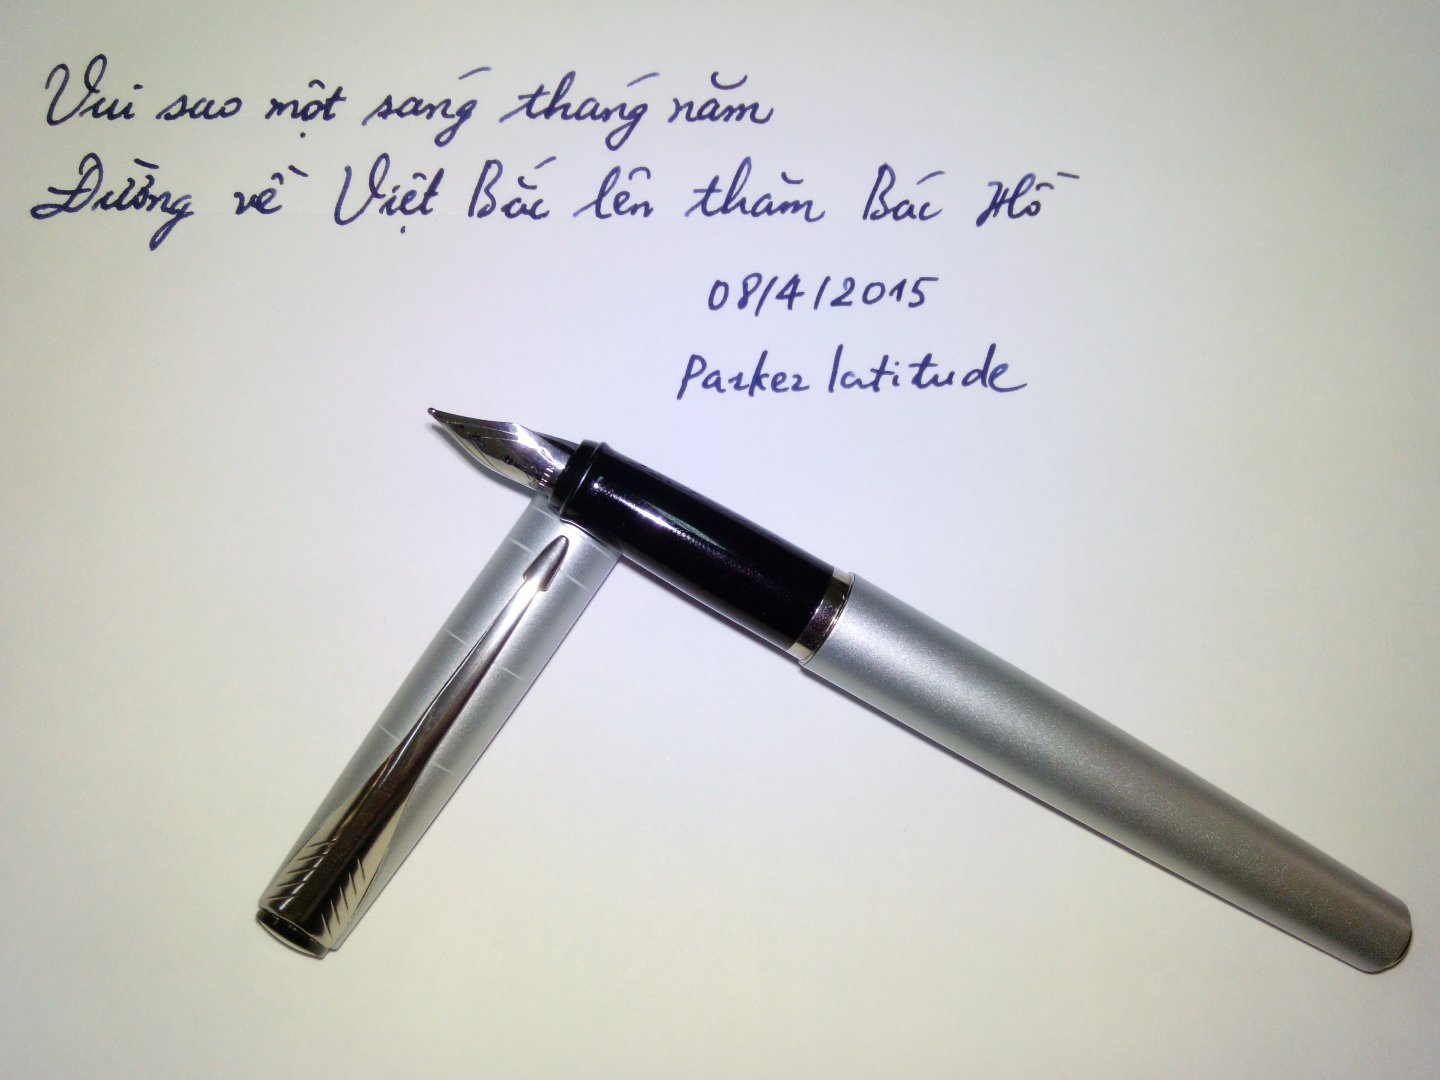 Vui sao một sáng tháng năm
Đường về Việt Bắc lên thăm Bác Hồ
08/4/2015
Parker latitude